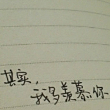 其实，
我多羡慕你